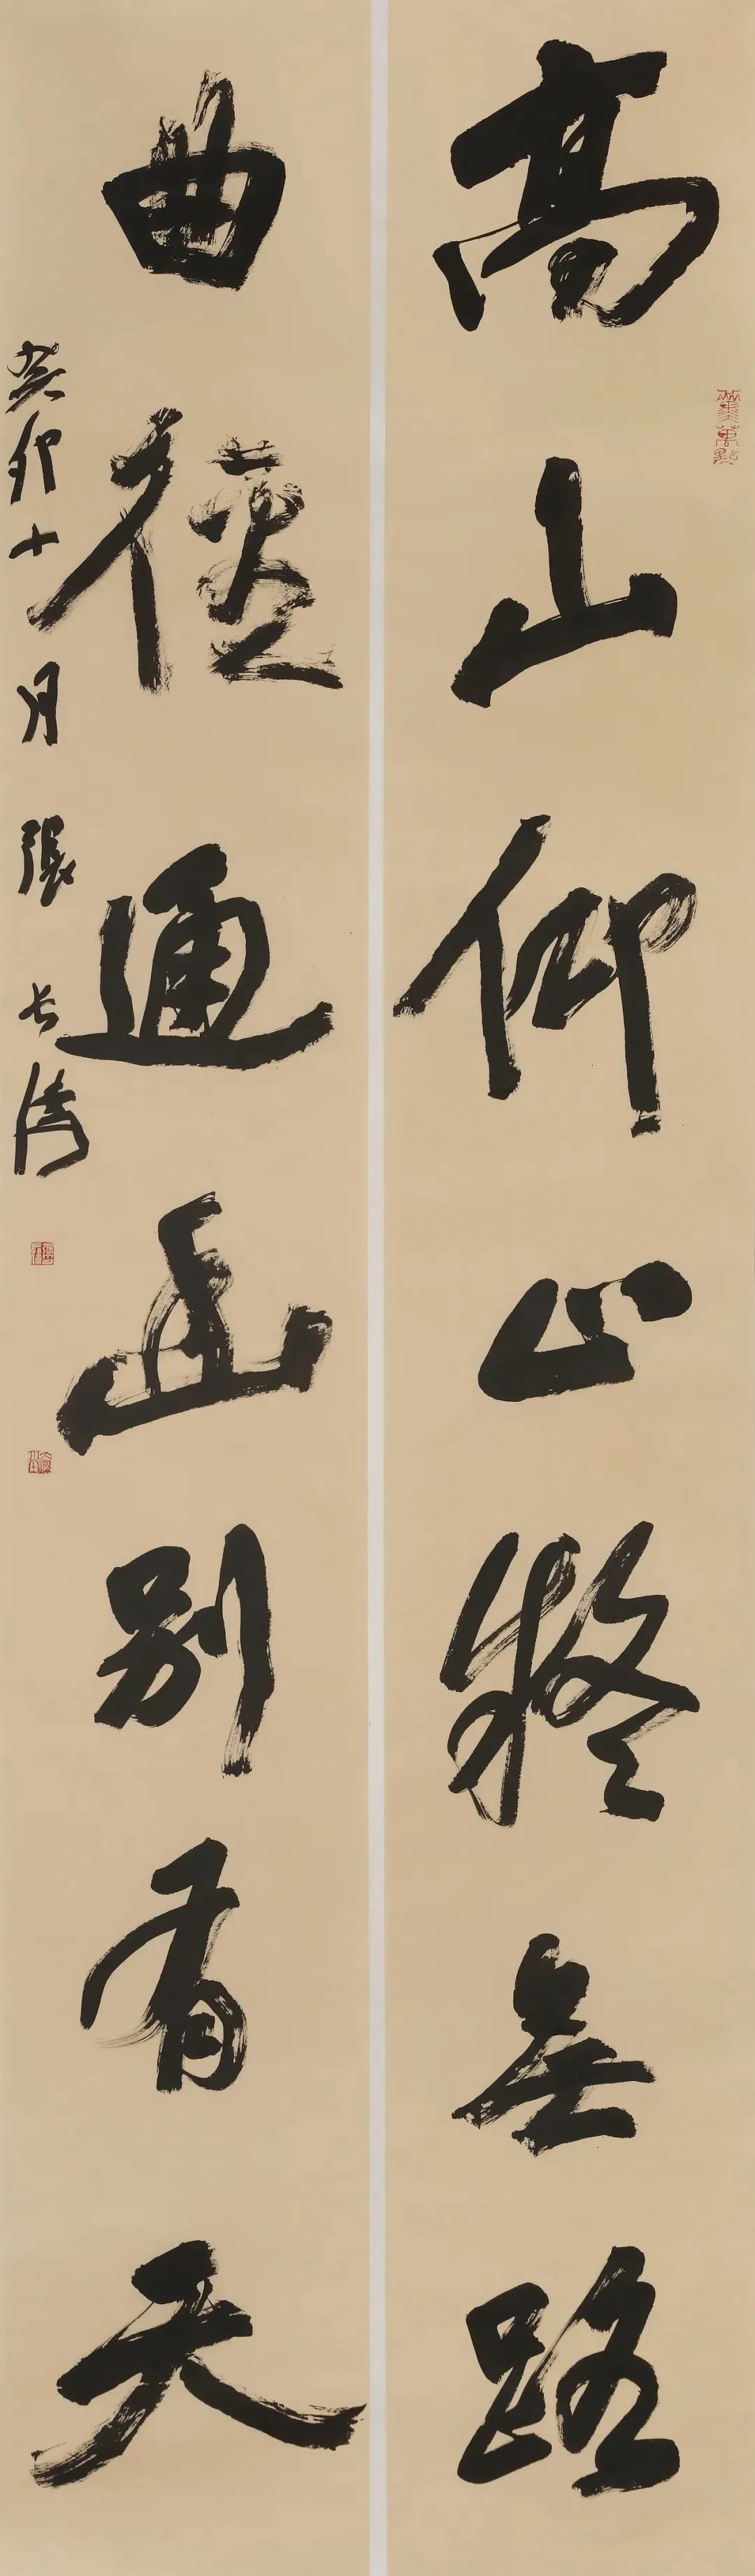 高山仰止疑無路
曲徑通幽別有天
癸卯十月 張長清